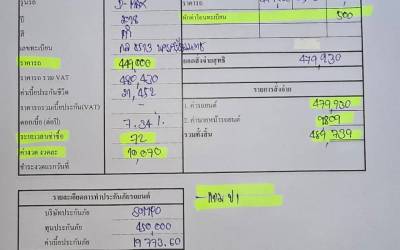 รุ่นรถ D-MAX
ปี
สี ดำ
เลขทะเบียน
ราคารถ 449,000
ราคารถ รวม VAT 480,430
ค่าเบี้ยประกันชีวิต 21,452
ราคารถรวมเบี้ยประกัน(VAT)
ดอกเบี้ย (ต่อปี) 7.34 %
ระยะเวลาเช่าซื้อ 72
ค่างวด งวดละ 10,070
ชำระงวดแรกวันที่
หักค่าโอนทะเบียน 500
ยอดสั่งจ่ายสุทธิ 479,930
รายการสั่งจ่าย
1. ค่ารถยนต์ 479,930
2. ค่านายหน้ารถยนต์ 9809
รวมทั้งสิ้น 489,739
รายละเอียดการทำประกันภัยรถยนต์
บริษัทประกันภัย
ทุนประกันภัย 450,000
ค่าเบี้ยประกันภัย 19,773.60